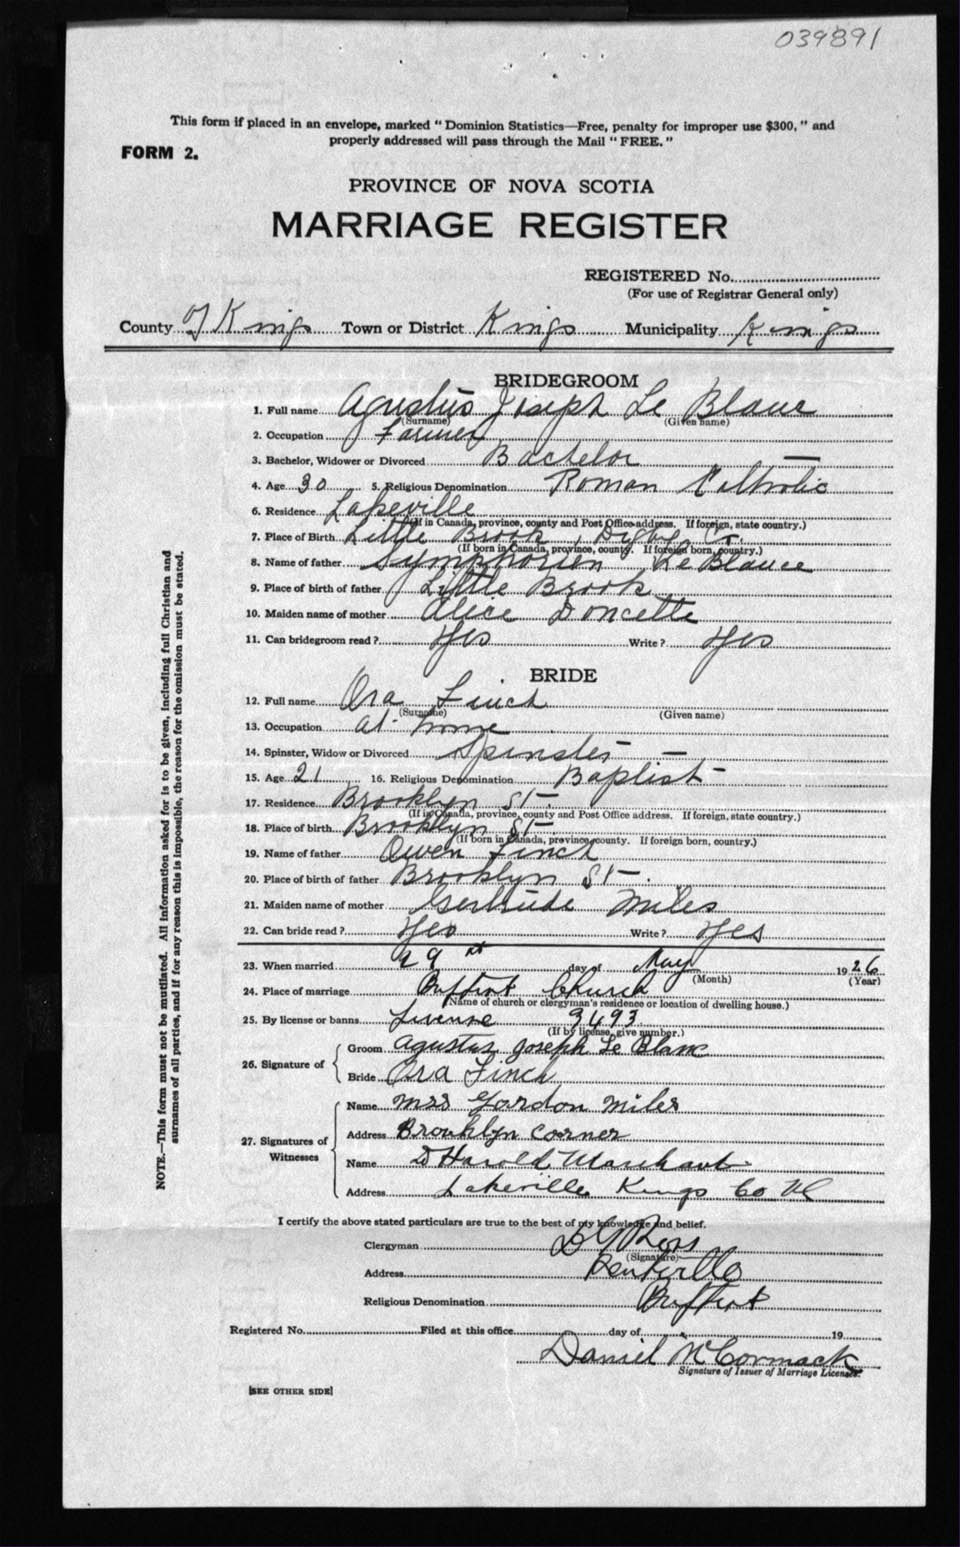 039891
This form if placed in an envelope, marked "Dominion Statistics—Free, penalty for improper use $300," and
properly addressed will pass through the Mail "FREE."
FORM 2.
PROVINCE OF NOVA SCOTIA
MARRIAGE REGISTER
REGISTERED No.
(For use of Registrar General only)
County of Kings Town or District Kings Municipality Kings
BRIDEGROOM
1. Full name Agustus Joseph Le Blanc
(Surname) (Given name)
2. Occupation Farmer
3. Bachelor, Widower or Divorced Bachelor
4. Age 30 5. Religious Denomination Roman Catholic
6. Residence Lakeville
(If in Canada, province, county and Post Office address. If foreign, state country.)
7. Place of Birth Little Brook, Digby Co.
(If born in Canada, province, county. If foreign born, country.)
8. Name of father Symphorien Le Blance
9. Place of birth of father Little Brook
10. Maiden name of mother Alice Doncette
11. Can bridegroom read? Yes Write? Yes
BRIDE
12. Full name Ora Finch
(Surname) (Given name)
13. Occupation at home
14. Spinster, Widow or Divorced Spinster
15. Age 21 16. Religious Denomination Baptist
17. Residence Brooklyn St.
(If in Canada, province, county and Post Office address. If foreign, state country.)
18. Place of birth Brooklyn St
(If born in Canada, province, county. If foreign born, country.)
19. Name of father Owen Finch
20. Place of birth of father Brooklyn St.
21. Maiden name of mother Gertrude Miles
22. Can bride read? Yes Write? Yes
23. When married 29 day of May 1926
(Month) (Year)
24. Place of marriage Baptist Church
(Name of church or clergyman's residence or location of dwelling house.)
25. By license or banns License 3493
(If by license, give number.)
26. Signature of
Groom Agustus Joseph Le Blanc
Bride Ora Finch
27. Signatures of Witnesses
Name Mrs Gordon Miles
Address Brooklyn Corner
Name D Harold Marchant
Address Lakeville Kings Co
I certify the above stated particulars are true to the best of my knowledge and belief.
Clergyman Ross
(Signature)
Address Kentville
Religious Denomination Baptist
Registered No. Filed at this office day of 19
Daniel McCormack
Signature of Issuer of Marriage Licenses.
[SEE OTHER SIDE]
NOTE.—This form must not be mutilated. All information asked for is to be given, including full Christian and
surnames of all parties, and if for any reason this is impossible, the reason for the omission must be stated.